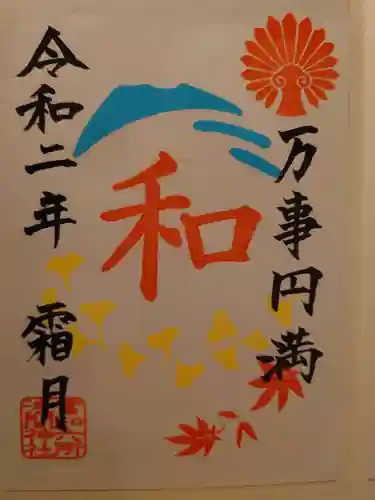 万事円満
和
令和二年 霜月